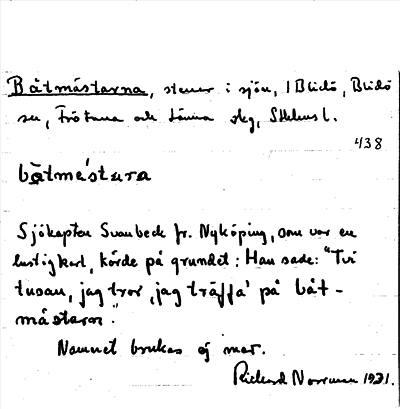 Båtmåstarna, stenar i sjön, i Blidö, Blidö
sn, Frötuna och Länna slg, Sthlms l.
438
båtmåstura
Sjökapten Svanbeck fr. Nyköping, som var en
lustig karl, körde på grundet: Han sade: "Tvi
tusan, jag tror, jag träffa' på båt-
måstaror."
Namnet brukas ej mer.
Rickard Norrman 1931.